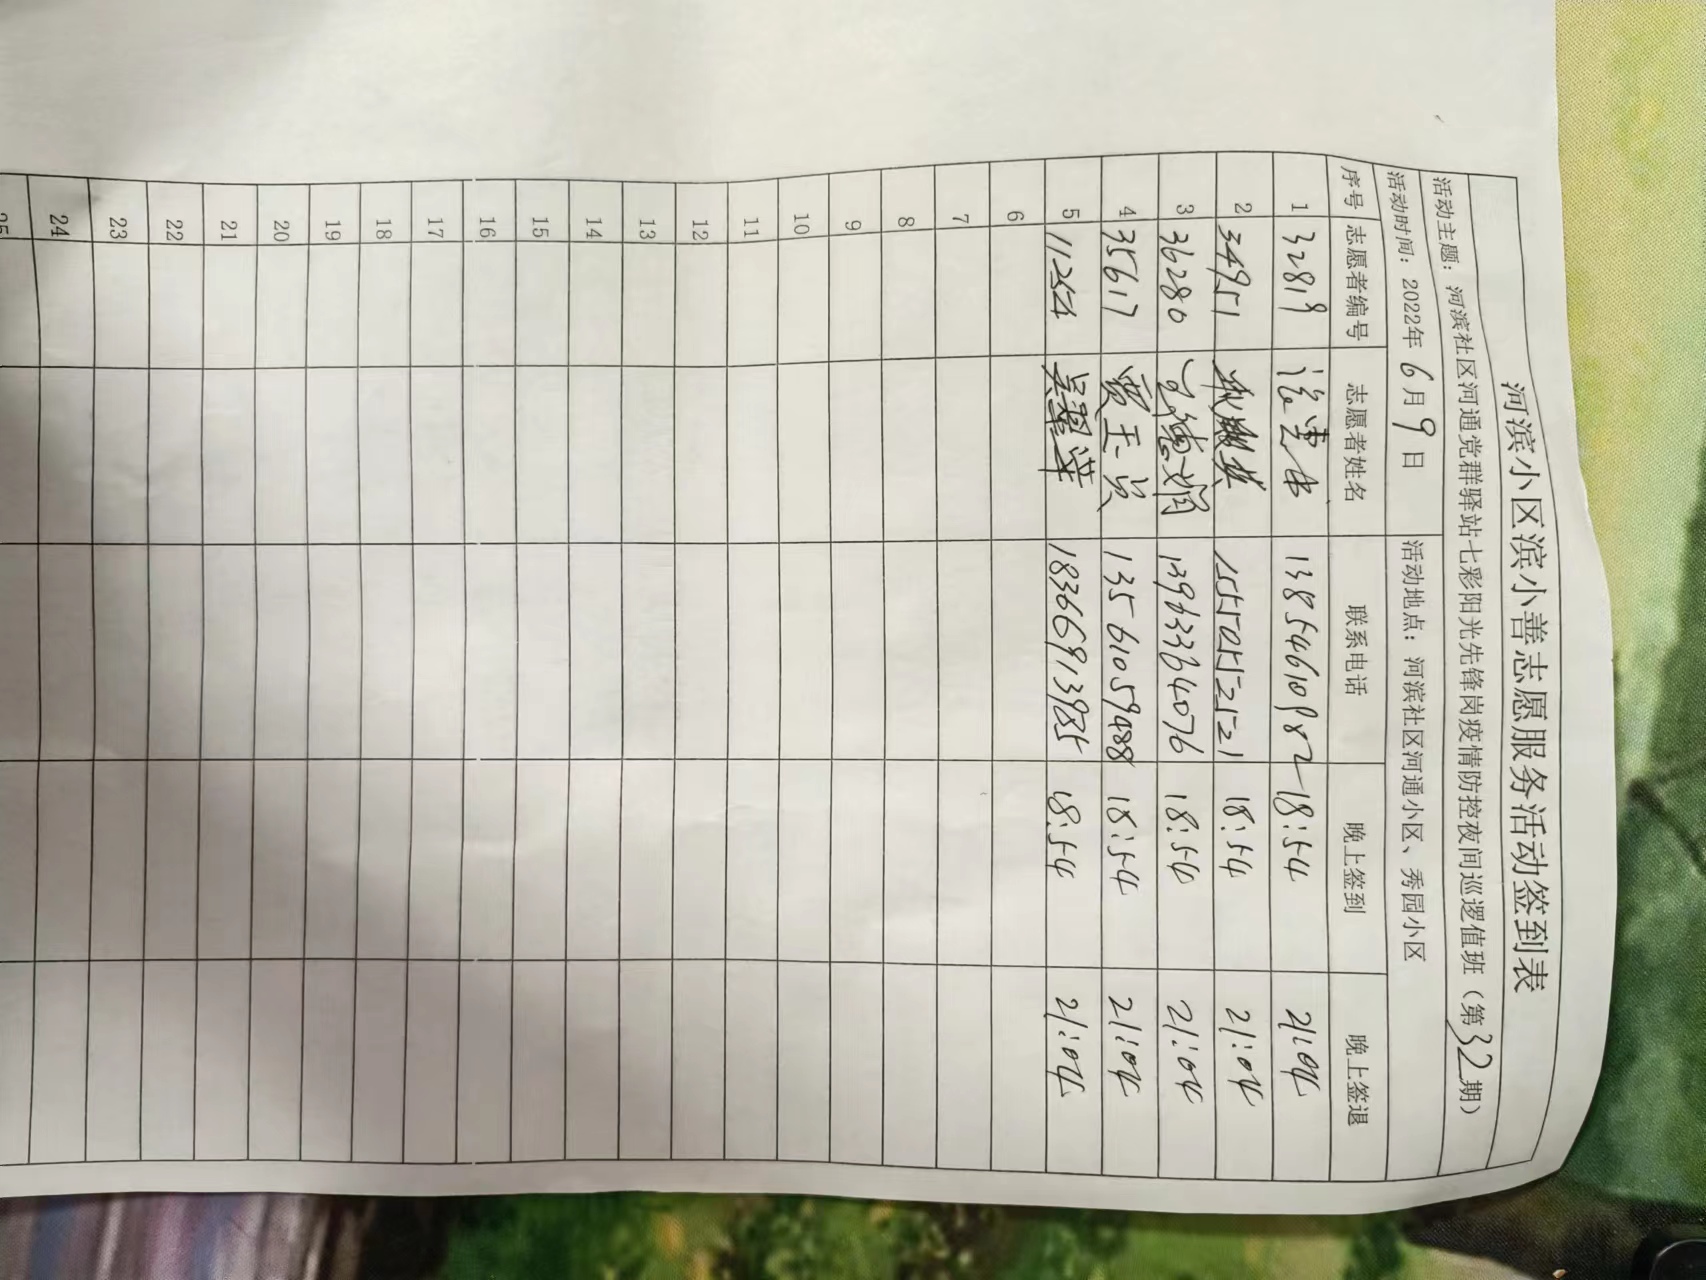 河滨小区滨小善志愿服务活动签到表
活动主题：河滨社区河通党群驿站七彩阳光先锋岗疫情防控夜间巡逻值班（第32期）
活动时间：2022年6月9日 活动地点：河滨社区河通小区、秀园小区
序号 志愿者编号 志愿者姓名 联系电话 晚上签到 晚上签退
1 32819 13854610982 18:54 21:04
2 34951 15505452121 18:54 21:04
3 36280 18:54 21:04
4 35617 贾玉 13561059488 18:54 21:04
5 11254 吴翠萍 18366913935 18:54 21:04
6
7
8
9
10
11
12
13
14
15
16
17
18
19
20
21
22
23
24
25